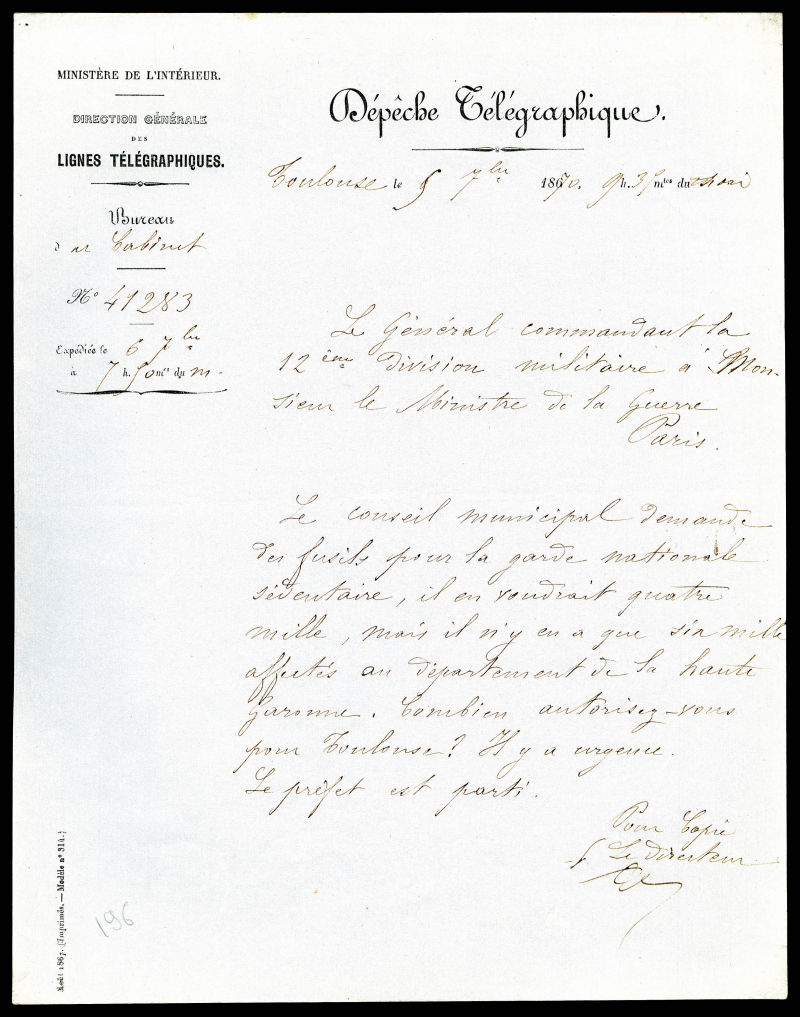 MINISTÈRE DE L'INTÉRIEUR.
DIRECTION GÉNÉRALE
DES
LIGNES TÉLÉGRAPHIQUES.
Bureau
d u Cabinet
N° 41283
Expédiée le 6 7bre
à 7 h. 50 mtes du m.
Dépêche Télégraphique.
Toulouse le 5 7bre 1870. 9 h. 35 mtes du soir
Le Général commandant la
12ème division militaire à Mon-
sieur le Ministre de la Guerre
Paris.
Le conseil municipal demande
des fusils pour la garde nationale
sédentaire, il en voudrait quatre
mille, mais il n'y en a que six mille
affectés au département de la haute
Garonne. Combien autorisez-vous
pour Toulouse? Il y a urgence.
Le préfet est parti.
Pour Copie
Le Directeur
196
Août 1867. (Imprimés. — Modèle n° 314.)